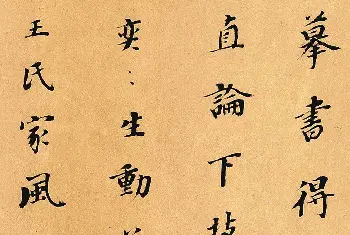 摹書得
直論下
奕〻生動
王氏家風